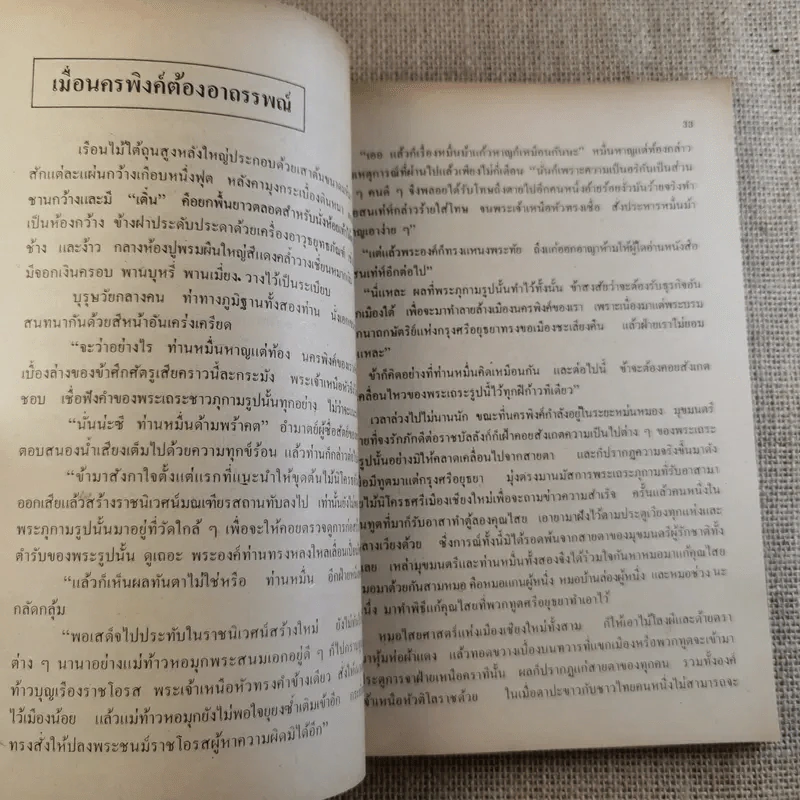 เมื่อนครพิงค์ต้องอาถรรพณ์
เรือนไม้ใต้ถุนสูงหลังใหญ่ประกอบด้วยเสาต้นขนาด
สักแต่ละแผ่นกว้างเกือบหนึ่งฟุต หลังคามุงกระเบื้องดินหนา
ชานกว้างและมี “เติ๋น” คือยกพื้นยาวตลอดสำหรับนั่งห้อย
เป็นห้องกว้าง ข้างฝาประดับประดาด้วยเครื่องอาวุธยุทธภัณฑ์
ช้าง และง้าว กลางห้องปูพรมผืนใหญ่สีแดงคล่ำวางเชี่ยนหมาก
มีจอกเงินครอบ พานบุหรี่ พานเมี่ยง วางไว้เป็นระเบียบ
บุรุษวัยกลางคน ท่าทางภูมิฐานทั้งสองท่าน นั่ง
สนทนากันด้วยสีหน้าอันเคร่งเครียด
“จะว่าอย่างไร ท่านหมื่นหาญแต่ท้อง นครพิงค์ของ
เบื้องล่างของข้าศึกศัตรูเสียคราวนี้ละกระมัง พระเจ้าเหนือหัว
ชอบ เชื่อฟังคำของพระเถระชาวภุกามรูปนั้นทุกอย่าง ไม่ว่าจะ
“นั่นน่ะซี ท่านหมื่นด้ามพร้าคต” อำมาตย์ผู้ซื่อสัตย์
ตอบสนองน้ำเสียงเต็มไปด้วยความทุกข์ร้อน แล้วท่านก็กล่าวต่อ
“ข้ามาสังกาใจตั้งแต่แรกที่แนะนำให้ขุดต้นไม้นิโครธ
ออกเสียแล้วสร้างราชนิเวศน์มณเฑียรสถานทับลงไป เท่านั้นยังไม่
พระภุกามรูปนั้นมาอยู่ที่วัดใกล้ ๆ เพื่อจะให้คอยตรวจดูการก่อ
ตำรับของพระรูปนั้น ดูเถอะ พระองค์ท่านทรงหลงใหลเลื่อน
“แล้วก็เห็นผลทันตาไม่ใช่หรือ ท่านหมื่น อีกฝ่าย
กลัดกลุ้ม
“พอเสด็จไปประทับในราชนิเวศน์สร้างใหม่ ยังไม่ทัน
ต่าง ๆ นานาอย่างแม่ท้าวหอมุกพระสนมเอกอยู่ดี ๆ ก็ไปกราบ
ท้าวบุญเรืองราชโอรส พระเจ้าเหนือหัวทรงคำข้างเดียว สั่งให้
ไว้เมืองน้อย แล้วแม่ท้าวหอมุกยังไม่พอใจยุยงซ้ำเติมเข้าอีก
ทรงสั่งให้ปลงพระชนม์ราชโอรสผู้หาความผิดมิได้อีก”
33
“เออ แล้วก็เรื่องหมื่นน้าแก้วหาญก็เหมือนกันนะ” หมื่นหาญแต่ท้องกล่าว
เหตุการณ์ที่ผ่านไปแล้วเพียงไม่กี่เดือน “นั่นก็เพราะความเป็นอริกันเป็นส่วน
ๆ คนดี ๆ จึงพลอยได้รับโทษถึงตายไปอีกคนหนึ่ง
สนเท่ห์กล่าวร้ายใส่โทษ จนพระเจ้าเหนือหัวทรงเชื่อ สั่งประหารหมื่นน้า
ญเอาง่าย ๆ”
“แต่แล้วพระองค์ก็ทรงแหนงพระทัย ถึงแก่ออกอาญาห้ามให้ผู้ใดอ่านหนังสือ
สนเท่ห์อีกต่อไป”
“นี่แหละ ผลที่พระภุกามรูปนั้นทำไว้ทั้งนั้น ข้าสงสัยว่าจะต้องรับธุรกิจอัน
เมืองใต้ เพื่อจะมาทำลายล้างเมืองนครพิงค์ของเรา เพราะเนื่องมาแต่พระบรม
นาถกษัตริย์แห่งกรุงศรีอยุธยาทรงขอเมืองชะเลียงคืน แล้วฝ่ายเราไม่ยอม
แหละ”
ข้าก็คิดอย่างที่ท่านหมื่นคิดเหมือนกัน และต่อไปนี้ ข้าจะต้องคอยสังเกต
เคลื่อนไหวของพระเถระรูปนี้ไว้ทุกฝีก้าวทีเดียว”
เวลาล่วงไปไม่นานนัก ขณะที่นครพิงค์กำลังอยู่ในระยะหม่นหมอง มุขมนตรี
ที่จงรักภักดีต่อราชบัลลังก์ก็เฝ้าคอยสังเกตความเป็นไปต่าง ๆ ของพระเถระ
รูปนั้นอย่างมิให้คลาดเคลื่อนไปจากสายตา และก็ปรากฏความจริงขึ้นมาดัง
มีทูตมาแต่กรุงศรีอยุธยา มุ่งตรงมานมัสการพระเถระภุกามที่รับอาสามา
ไม้นิโครธศรีเมืองเชียงใหม่เพื่อจะถามข่าวความสำเร็จ ครั้นแล้วคนหนึ่งใน
ทูตที่มาก็รับอาสาทำตู้ลองคุณไสย เอายามาฝังไว้ตามประตูเวียงทุกแห่งและ
กลางเวียงด้วย ซึ่งการณ์ทั้งนี้มิได้รอดพ้นจากสายตาของมุขมนตรีผู้รักชาติทั้ง
เลย เหล่ามุขมนตรีและท่านหมื่นทั้งสองจึงได้ร่วมใจกันหาหมอมาแก้คุณไสย
หมอมาด้วยกันสามหมอ คือหมอแกนผู้หนึ่ง หมอบ้านล่องผู้หนึ่ง และหมอช่วง นะ
นึ่ง มาทำพิธีแก้คุณไสยที่พวกทูตศรีอยุธยาทำเอาไว้
หมอไสยศาสตร์แห่งเมืองเชียงใหม่ทั้งสาม ก็ให้เอาไม้ไล่งผีและด้ายตวา
มาหุ้มห่อผ้าแดง แล้วทอดขวางเบื้องบนทวารที่แขกเมืองหรือพวกทูตจะเข้ามา
ประตูการจาฝ่ายเหนือควาทินั้น ผลก็ปรากฏแก่สายตาของทุกคน รวมทั้งองค์
เจ้าเหนือหัวติโลราชด้วย ในเมื่อตาปะขาวกับชาวไทยคนหนึ่งไม่สามารถจะ